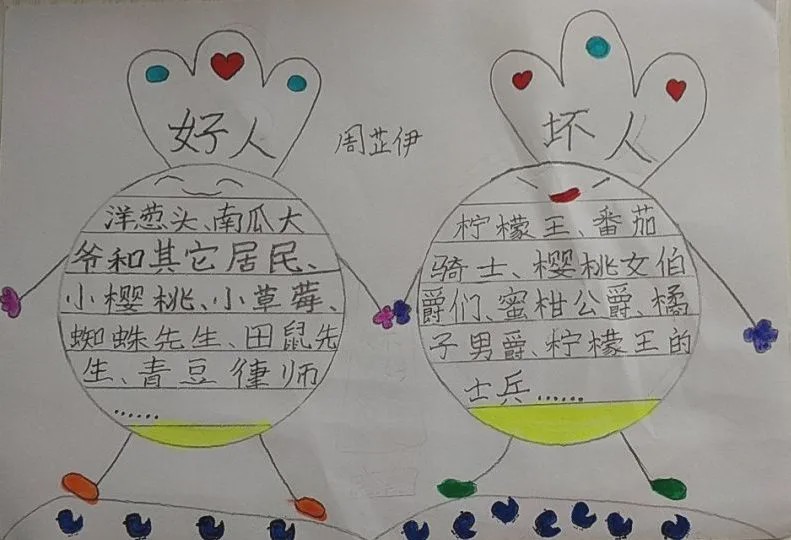 好人
周芷伊
坏人
洋葱头、南瓜大
爷和其它居民、
小樱桃、小草莓、
蜘蛛先生、田鼠先
生、青豆律师
……
柠檬王、番茄
骑士、樱桃女伯
爵们、蜜柑公爵、橘
子男爵、柠檬王的
士兵……